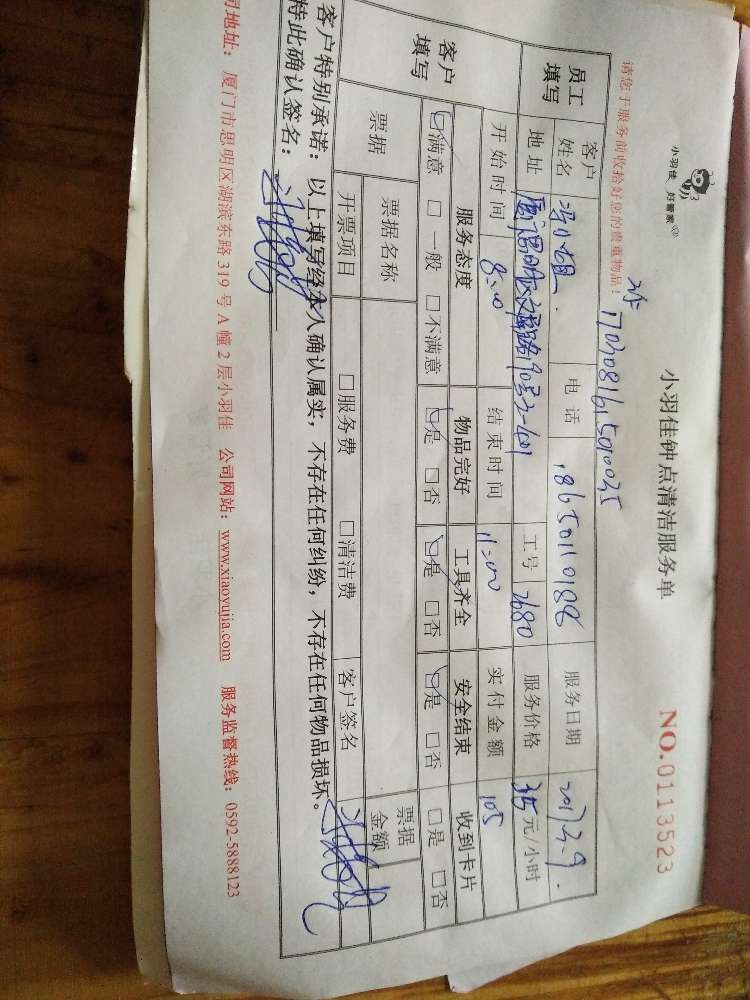 小羽佳 好管家
小羽佳钟点清洁服务单
NO.0113523
请您于服务前收拾好您的贵重物品!
员工填写
客户姓名 冯小姐 电话 18650110188 服务日期 2017.2.9
地址 工号 2680 服务价格 35元/小时
开始时间 8:00 结束时间 11:00 实付金额 105
客户填写
服务态度 物品完好 工具齐全 安全结束 收到卡片
☑满意 □一般 □不满意 ☑是 □否 ☑是 □否 ☑是 □否 □是 □否
票据 票据名称 票据金额
开票项目 □服务费 □清洁费 客户签名
客户特别承诺:以上填写经本人确认属实,不存在任何纠纷,不存在任何物品损坏。
特此确认签名:
司地址:厦门市思明区湖滨东路319号A幢2层小羽佳 公司网站:www.xiaoyujia.com 服务监督热线:0592-5888123